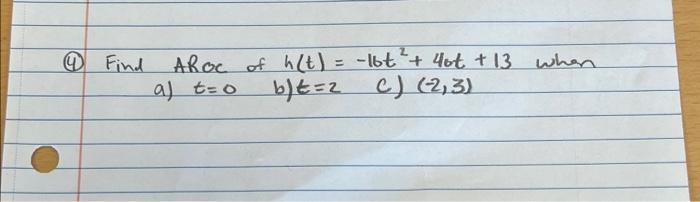 ④ Find AROC of h(t) = -16t² + 40t + 13 when
a) t=0 b) t=2 c) (-2,3)